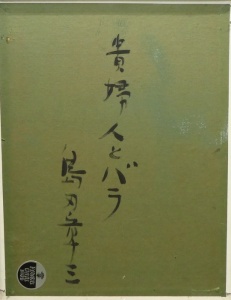 貴婦人とバラ
島田章三